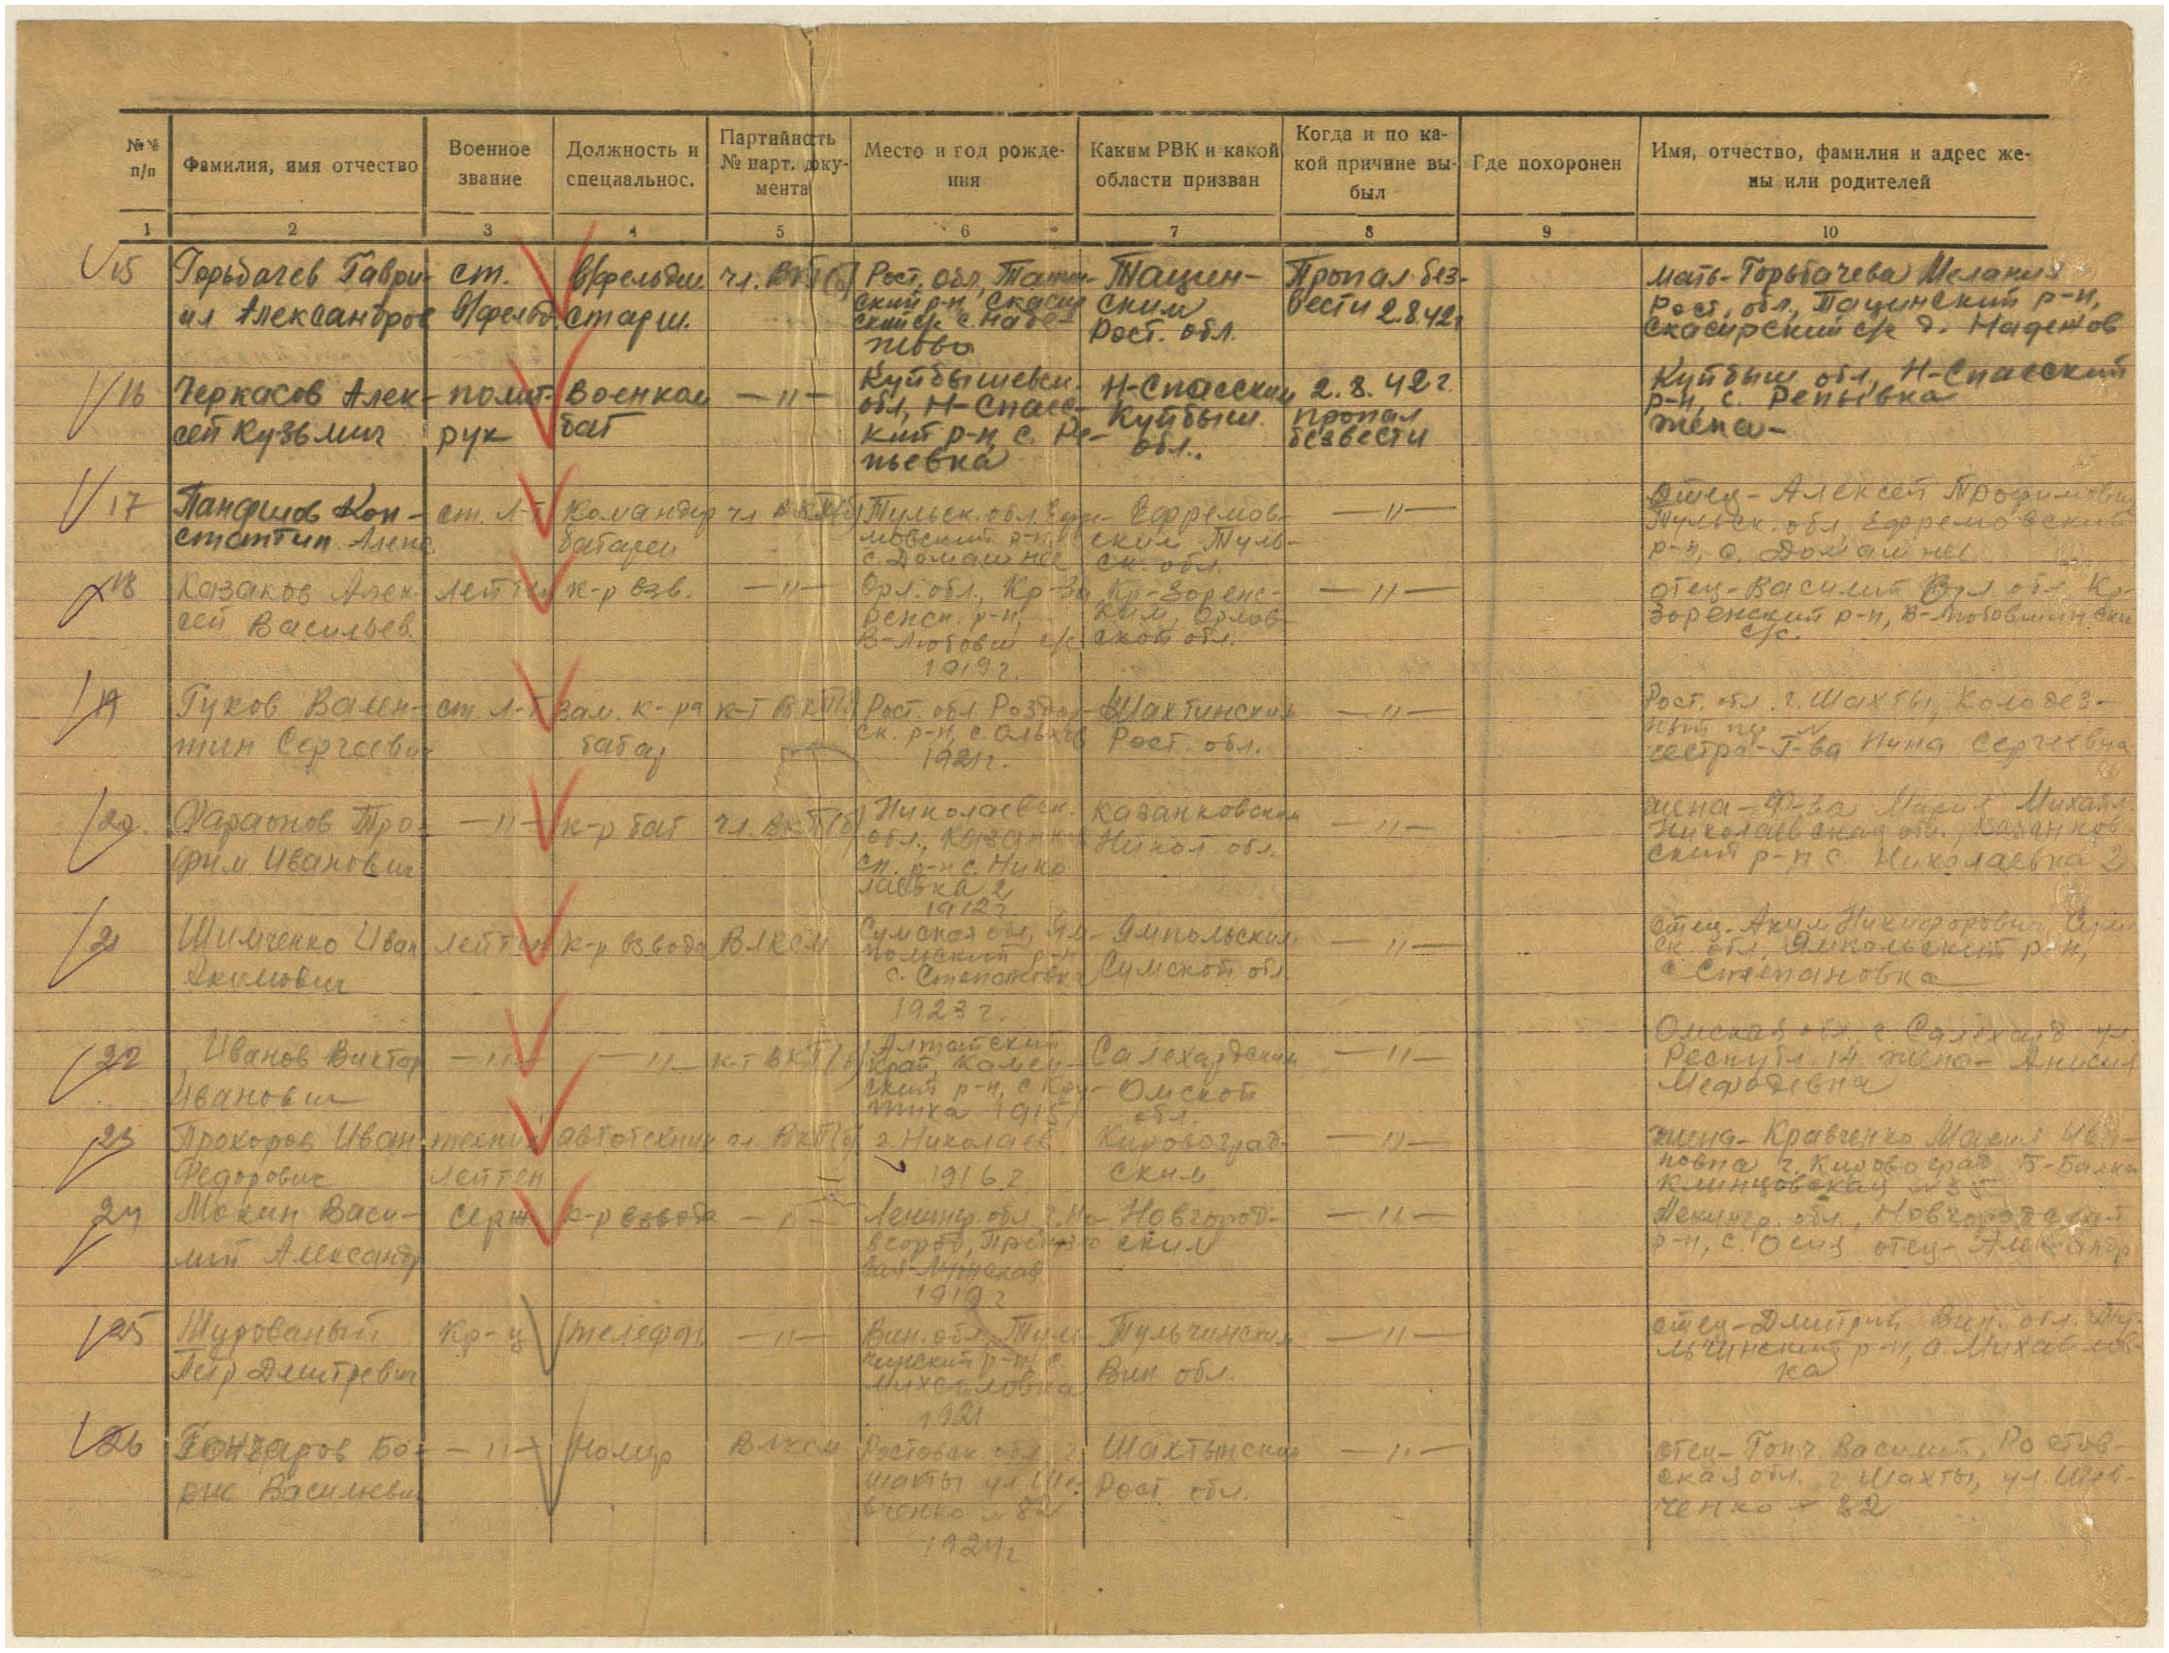 №№ п/п
Фамилия, имя отчество
Военное
звание
Должность и
специальнос.
Партийность
№ парт. доку-
мента
Место и год рожде-
ния
Каким РВК и какой
области призван
Когда и по ка-
кой причине вы-
был
Где похоронен
Имя, отчество, фамилия и адрес же-
ны или родителей
1 2 3 4 5 6 7 8 9 10
15
Горьбачев Гаври-
ил Александров
ст.
в/фельд.
в/фельдш.
старш.
чл. ВКП(б)
Рост. обл., Тацин-
ский р-н, Скасыр
ский с/с с. Наде-
жово
Тацин-
ским
Рост. обл.
Пропал без-
вести 2.8.42г
мать-Горьбачева Мелания
Рост. обл., Тацинский р-н,
Скасырский с/с д. Надежов
16
Черкасов Алек-
сей Кузьмич
полит-
рук
Военком
бат
—"—
Куйбышевск.
обл, Н-Спасс-
кий р-н, с. Ре-
пьевка
Н-Спасским
Куйбыш.
обл.
2.8.42г.
пропал
безвести
Куйбыш обл., Н-Спасский
р-н, с. Репьевка
жена-
17
Панфилов Кон-
стантин Алекс.
ст. л-т
Командир
батареи
чл ВКП(б)
Тульск. обл. Ефре-
мовский р-н,
с. Домашнее
Ефремов-
ским Туль-
ск. обл.
—"—
Отец-Алексей Трофимович
Тульск. обл, Ефремовский
р-н, с. Домашнее
18
Казаков Алек-
сей Васильев.
лейтен
к-р взв.
—"—
Орл. обл., Кр-Зо
ренск. р-н,
В-Любовш с/с
1919г.
Кр-Зоренс-
ким, Орлов-
ской обл.
—"—
отец-Василий Орл обл. Кр-
Зоренский р-н, В-Любовшинский
с/с.
19
Гуков Вален-
тин Сергеевич
ст л-т
зам. к-ра
батар
к-т ВКП(б)
Рост. обл Раздор-
ск. р-н, с. Ольхов
1921г.
Шахтинским
Рост. обл.
—"—
Рост. обл. г. Шахты, Колодез-
ный
сестра-Г-ва Нина Сергеевна
20.
Фараонов Тро-
фим Иванович
—"—
к-р бат
чл. ВКП(б)
Николаевск.
обл., Казанков
ск. р-н с. Нико
лаевка 2
1912г
Казанковским
Никол. обл.
—"—
жена-Ф-ва Мария Михайл
Николаевская обл., Казанков
ский р-н с. Николаевка 2
21
Шимченко Иван
Акимович
лейтен
к-р взвода
ВЛКСМ
Сумская обл, Ям-
польский р-н
с. Степановка
1923г.
Ямпольским
Сумской обл
—"—
отец-Аким Никифорович Сум
ск. обл, Ямпольский р-н,
с Степановка
22
Иванов Виктор
Иванович
—"—
—"—
к-т ВКП(б)
Алтайский
край, Камен-
ский р-н, с Кру-
тиха 1915
Салехардским
Омской
обл.
—"—
Омская обл, г. Салехард ул.
Республ. 14 жена-Анисия
Мефодевна
23
Прохоров Иван
Федорович
техник
лейтен
автотехник
чл. ВКП(б)
г. Николаев
1916г.
Кировоград-
ским
—"—
жена-Кравченко Мария Ива-
новна г. Кировоград Б-Балка
Клинцовская
24
Мокин Васи-
лий Александр
Серж
к-р взвода
—"—
Ленингр. обл г. Но-
вгород,
1919г
Новгород-
ским
—"—
Ленингр. обл., Новгородский
р-н, с. отец-Александр
25
Мурованый
Петр Дмитревич
кр-ц
телефон.
—"—
Вин. обл, Туль-
чинский р-н, с.
Михайловка
1921
Тульчинским
Вин обл.
—"—
отец-Дмитрий Вин. обл. Ту-
льчинский р-н, с. Михайлов-
ка
26
Гончаров Бо-
рис Васильевич
—"—
Номер
ВЛКСМ
Ростовск обл г.
Шахты ул Ше-
вченко 82
1924г
Шахтынским
Рост обл.
—"—
отец-Гонч. Василий, Ростов-
ская обл. г Шахты, ул. Шев-
ченко 82